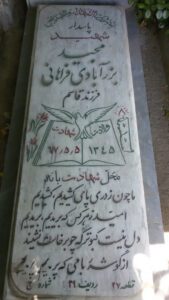 پاسدار
شهید
محمد
بزرآبادی فراهانی
فرزند قاسم
ولادت شهادت
۱۳۴۵ ۶۷،۵،۵
محل شهادت بانه
ما چون ز دری پای کشیدیم کشیدیم
امید ز هر کس که بریدیم بریدیم
دل نیست کبوتر که چو برخاست نشیند
از گوشه بامی که پریدیم پریدیم
قطعه ۲۷ ردیف ۲۹